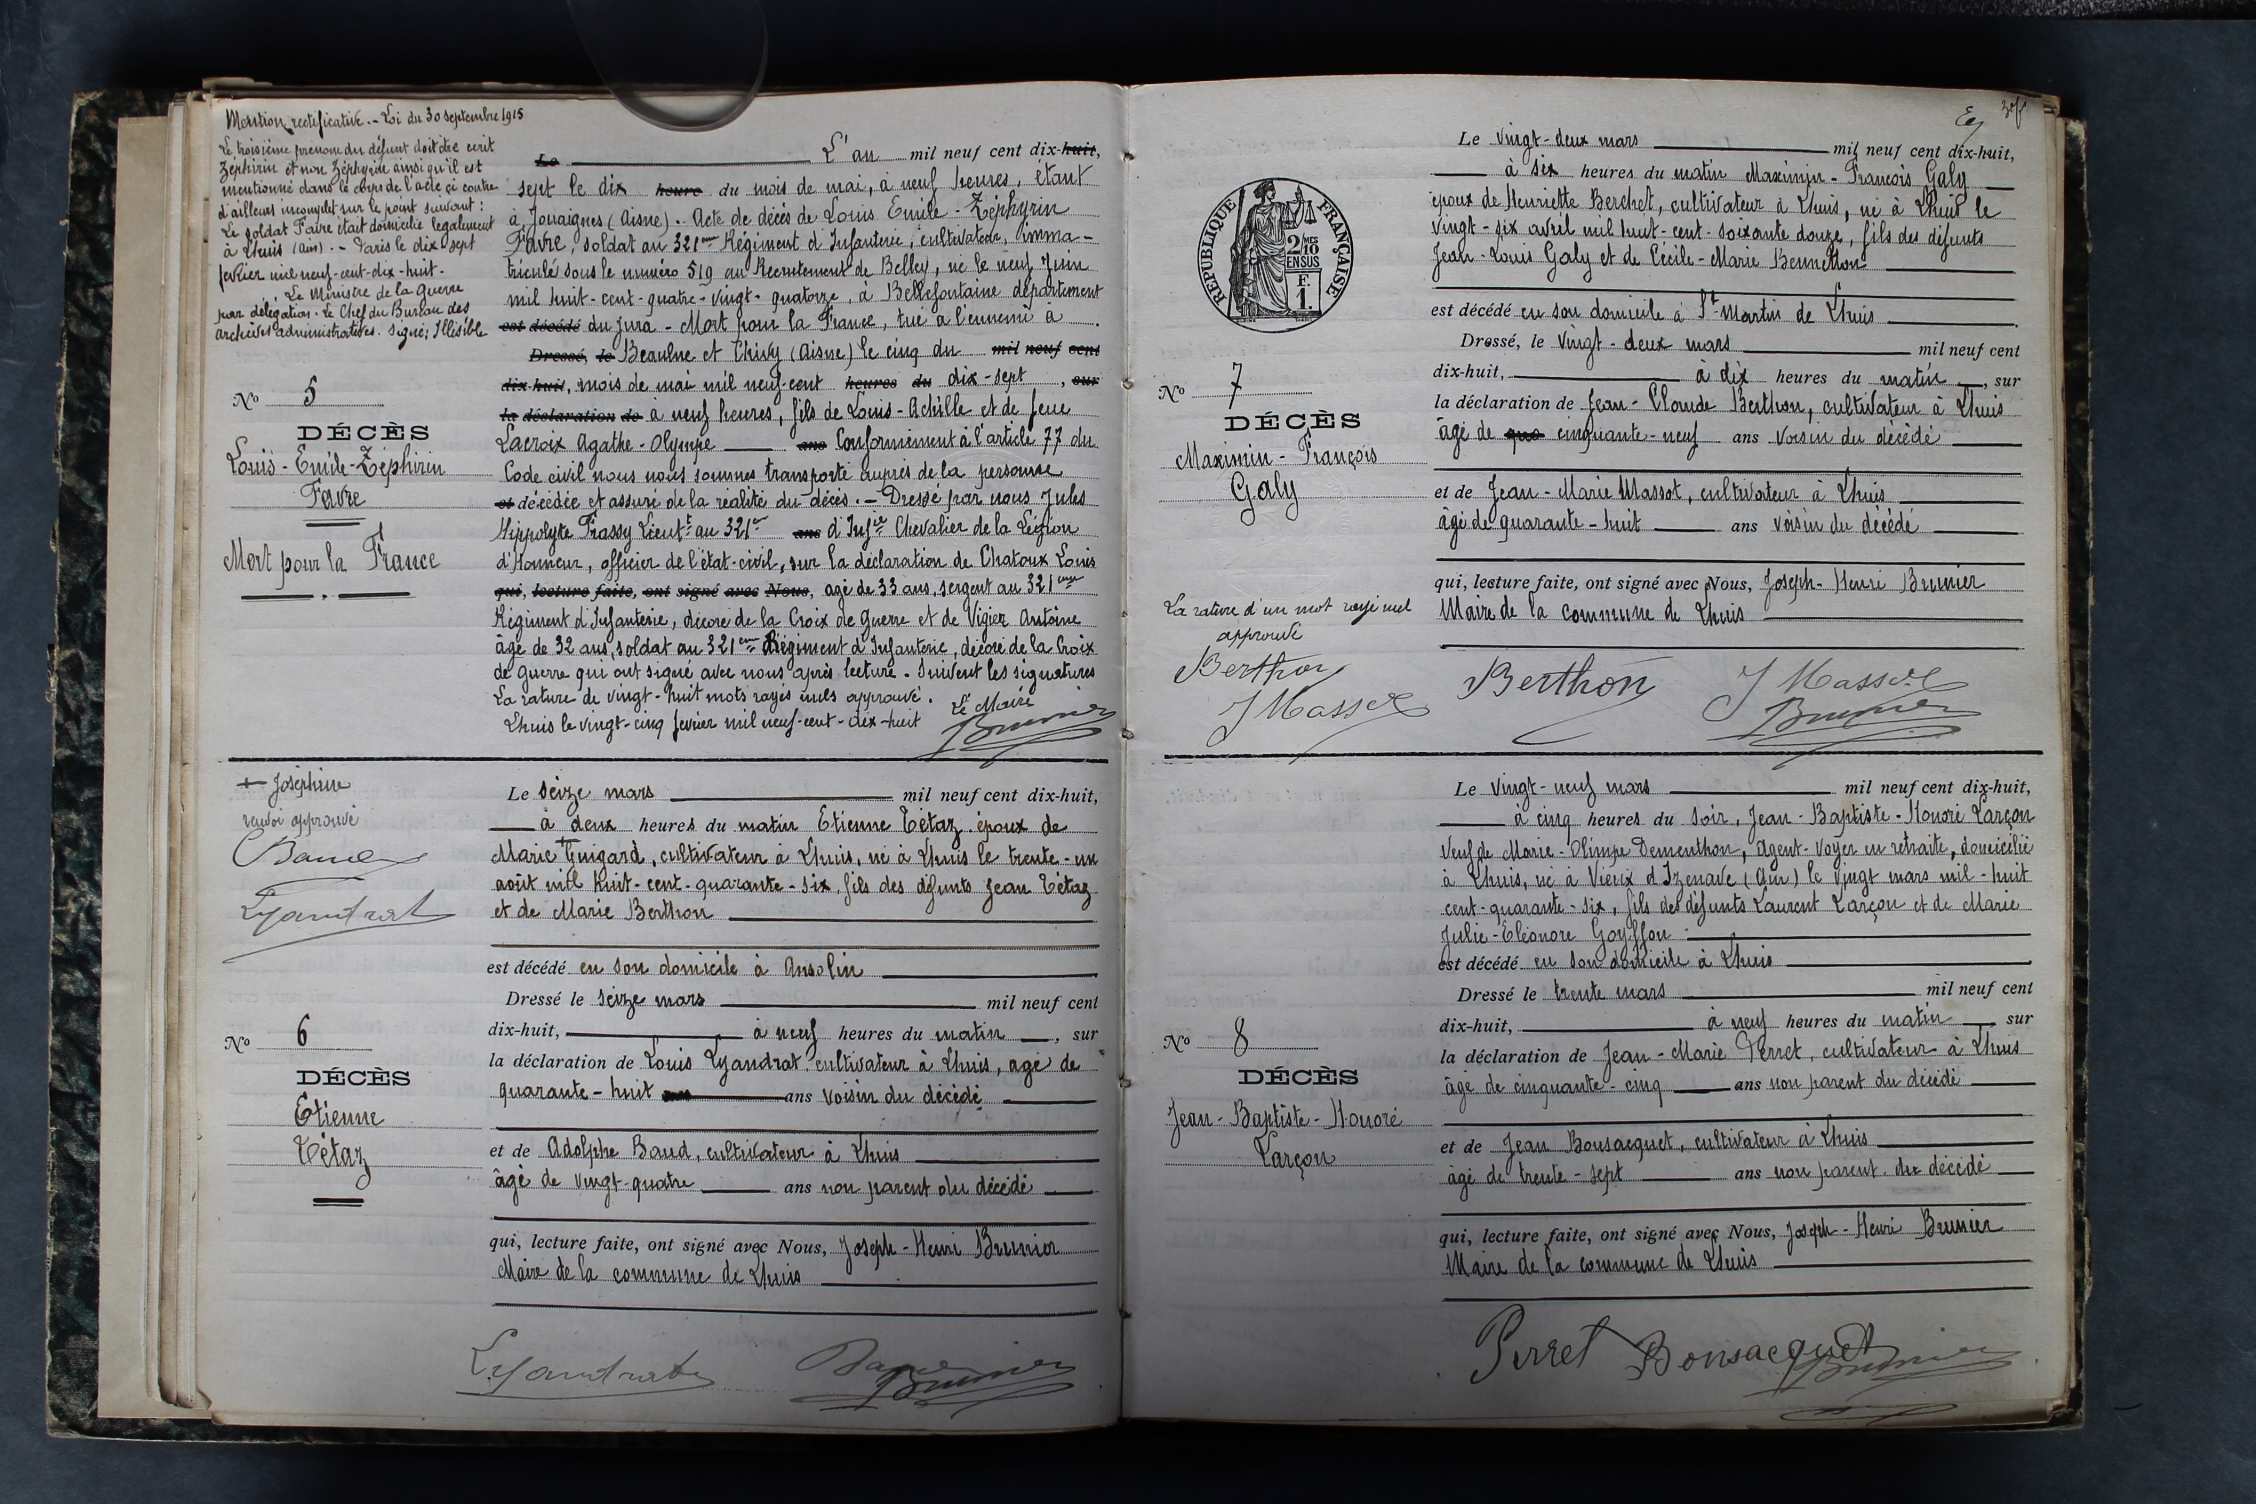 Mention rectificative. - Loi du 30 septembre 1915
Le troisième prénom du défunt doit être écrit
Zéphirin et non Zéphyrin ainsi qu'il est
mentionné dans le corps de l'acte ci contre
d'ailleurs incomplet sur le point suivant :
Le soldat Favre était domicilié légalement
à Lhuis (Ain). - Paris le dix sept
février mil neuf-cent-dix-huit.
Le Ministre de la Guerre
par délégation. Le Chef du Bureau des
archives administratives. signé; Illisible
No 5
DÉCÈS
Louis-Emile-Zéphirin
Favre
Mort pour la France
Le L'an mil neuf cent dix-huit,
sept le dix heure du mois de mai, à neuf heures, étant
à Jouaignes (Aisne). Acte de décès de Louis Emile-Zéphyrin
Favre, soldat au 321eme Régiment d'Infanterie, cultivateur, imma-
triculé sous le numéro 519 au Recrutement de Belley, né le neuf Juin
mil huit-cent-quatre-vingt-quatorze, à Bellefontaine département
est décédé du Jura - Mort pour la France, tué à l'ennemi à
Dressé, le Beaulne et Chivy (Aisne) le cinq du mil neuf cent
dix-huit, mois de mai mil neuf-cent heures du dix-sept, sur
la déclaration de à neuf heures, fils de Louis-Achille et de feue
Lacroix Agathe-Olympe ans Conformément à l'article 77 du
Code civil nous nous sommes transporté auprès de la personne
et décédée et assuré de la réalité du décès. - Dressé par nous Jules
Hippolyte Frassy Lieutt au 321e ans d'Infie Chevalier de la Légion
d'Honneur, officier de l'état-civil, sur la déclaration de Chatoux Louis
qui, lecture faite, ont signé avec Nous, agé de 33 ans, sergent au 321eme
Régiment d'Infanterie, décoré de la Croix de Guerre et de Vigier Antoine
âgé de 32 ans, soldat au 321eme Régiment d'Infanterie, décoré de la Croix
de Guerre qui ont signé avec nous après lecture. Suivent les signatures
La rature de vingt-huit mots rayés nuls approuvé. Le Maire
Lhuis le vingt-cinq février mil neuf-cent-dix-huit Brunier
+ Joséphine
renvoi approuvé
Baud
Lyandrat
No 6
DÉCÈS
Etienne
Tétaz
Le seize mars mil neuf cent dix-huit,
à deux heures du matin Etienne Tétaz époux de
Marie + Guigard, cultivateur à Lhuis, né à Lhuis le trente-un
août mil huit-cent-quarante-six, fils des défunts Jean Tétaz
et de Marie Berthon
est décédé en son domicile à Ansolin
Dressé le seize mars mil neuf cent
dix-huit, à neuf heures du matin, sur
la déclaration de Louis Lyandrat cultivateur à Lhuis, agé de
quarante-huit ans voisin du décédé
et de Adolphe Baud, cultivateur à Lhuis
âgé de vingt-quatre ans non parent du décédé
qui, lecture faite, ont signé avec Nous, Joseph-Henri Brunier
Maire de la commune de Lhuis
Lyandrat Baud
Brunier
RÉPUBLIQUE FRANÇAISE
2/10MES
EN SUS
F.
1.
No 7
DÉCÈS
Maximin-François
Galy
La rature d'un mot rayé nul
approuvé
Berthon
J Massot
Le vingt-deux mars mil neuf cent dix-huit,
à six heures du matin Maximin-François Galy
époux de Henriette Berchet, cultivateur à Lhuis, né à Lhuis le
vingt-six avril mil huit-cent-soixante douze, fils des défunts
Jean-Louis Galy et de Cécile-Marie Bennetton
est décédé en son domicile à St-Martin de Lhuis
Dressé, le vingt-deux mars mil neuf cent
dix-huit, à dix heures du matin, sur
la déclaration de Jean-Claude Berthon, cultivateur à Lhuis
âgé de qua cinquante-neuf ans voisin du décédé
et de Jean-Marie Massot, cultivateur à Lhuis
âgé de quarante-huit ans voisin du décédé
qui, lecture faite, ont signé avec Nous, Joseph-Henri Brunier
Maire de la commune de Lhuis
Berthon J Massot
Brunier
No 8
DÉCÈS
Jean-Baptiste-Honoré
Larçon
Le vingt-neuf mars mil neuf cent dix-huit,
à cinq heures du soir, Jean-Baptiste-Honoré Larçon
veuf de Marie-Olimpe Dementhon, Agent-voyer en retraite, domicilié
à Lhuis, né à Vieux d'Izenave (Ain) le vingt mars mil-huit
cent-quarante-six, fils des défunts Laurent Larçon et de Marie
Julie-Eléonore Goyffon
est décédé en son domicile à Lhuis
Dressé le trente mars mil neuf cent
dix-huit, à neuf heures du matin sur
la déclaration de Jean-Marie Perret, cultivateur à Lhuis
âgé de cinquante-cinq ans non parent du décédé
et de Jean Bonsacquet, cultivateur à Lhuis
âgé de trente-sept ans non parent du décédé
qui, lecture faite, ont signé avec Nous, Joseph-Henri Brunier
Maire de la commune de Lhuis
Perret Bonsacquet
Brunier